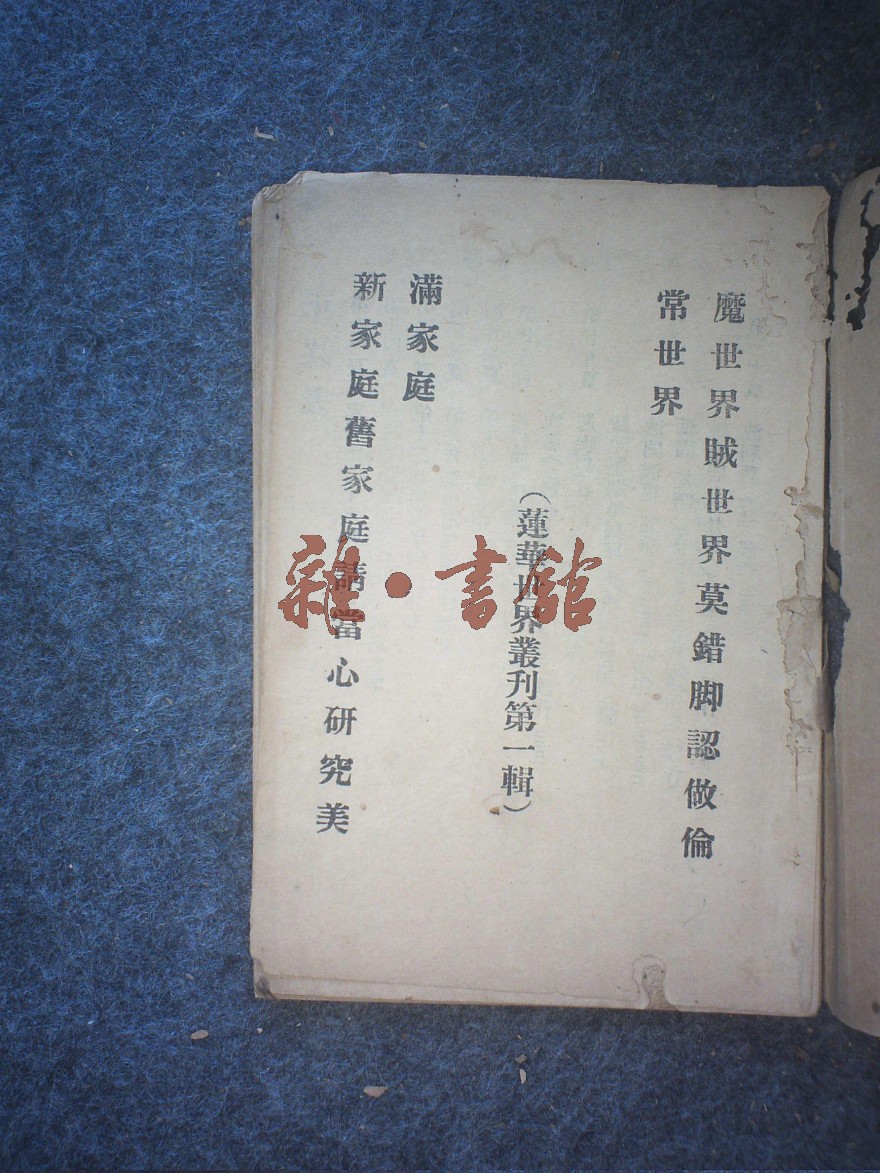 魔世界賊世界莫錯脚認做倫
常世界
（蓮華世界叢刊第一輯）
新家庭舊家庭請當心研究美
滿家庭
雜·書館